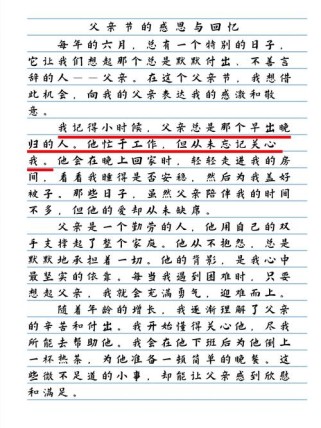 父亲节的感思与回忆
每年的六月，总有一个特别的日子，
它让我们想起那个总是默默付出、不善言
辞的人——父亲。在这个父亲节，我想借
此机会，向我的父亲表达我的感激和敬
意。
我记得小时候，父亲总是那个早出晚
归的人。他忙于工作，但从未忘记关心
我。他会在晚上回家时，轻轻走进我的房
间，看看我睡得是否安稳，然后为我盖好
被子。那些日子，虽然父亲陪伴我的时间
不多，但他的爱却从未缺席。
父亲是一个勤劳的人，他用自己的双
手支撑起了整个家庭。他从不抱怨，总是
默默地承担着一切。他的背影，是我心中
最坚实的依靠。每当我遇到困难时，只要
想起父亲，我就会充满勇气，迎难而上。
随着年龄的增长，我逐渐理解了父亲
的辛苦和付出。我开始懂得关心他，尽我
所能去帮助他。我会在他下班后为他倒上
一杯热茶，为他准备一顿简单的晚餐。这
些微不足道的小事，却能让父亲感到欣慰
和满足。